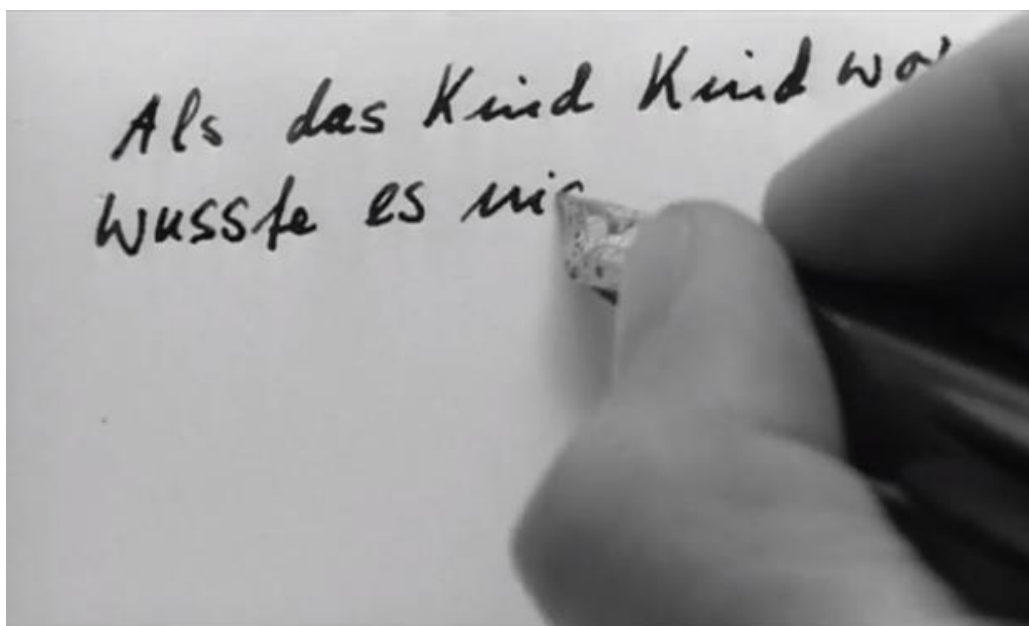 Als das Kind Kind wa
wusste es nic